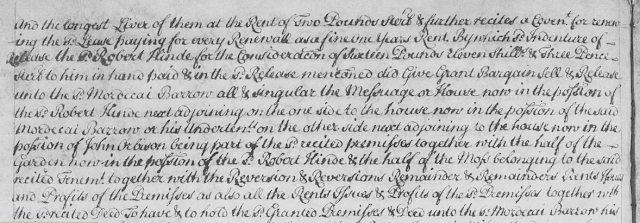 And the longest Liver of them at the Rent of Two Pounds Sterl: & further recites a Coven.t for renew
ing the s.d Lease paying for every Renewall as a fine one Years Rent By which s.d Indenture of
Release the s.d Robert Hinde for the Consideracon of Sixteen Pounds Eleven Shill.s & Three Pence
Sterl to him in hand paid & in the s.d Release mentioned did Give Grant Bargain Sell & Release
unto the s.d Mordecai Barrow all & singular the Messuage or House now in the possion of
the s.d Robert Hinde next adjoining on the one side to the house now in the possion of the said
Mordecai Barrow or his Undertent.s on the other side next adjoining to the house now in the
possion of John Orbison being part of the s.d recited premisses together with the half of the
Garden now in the possion of the s.d Robert Hinde & the half of the Moss belonging to the said
recited Tenem.t together with the Reversion & Reversions Remainder & Remainders Rents Issues
and Profits of the Premisses as also all the Rents Issues & Profits of the s.d Premisses together with
the s.d recited Deed To have & to hold the s.d Granted Premisses & Deed unto the s.d Mordecai Barrow his